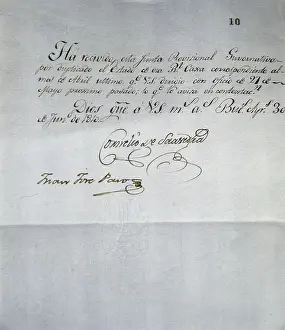 10
Ha recivido esta Junta Provisional Gubernativa
por duplicado el Estado de esa Rl. Caxa correspondiente al
mes de Abril ultimo q.e V.S. dirigio con oficio de 21 de
Mayo proximo pasado; lo q.e le avisa en contextac.n
Dios gũe a V.S. m.s a.s Bu.s Ayr.s 30
de Jun.o de 1810
Cornelio de Saavedra
Juan Jose Paso